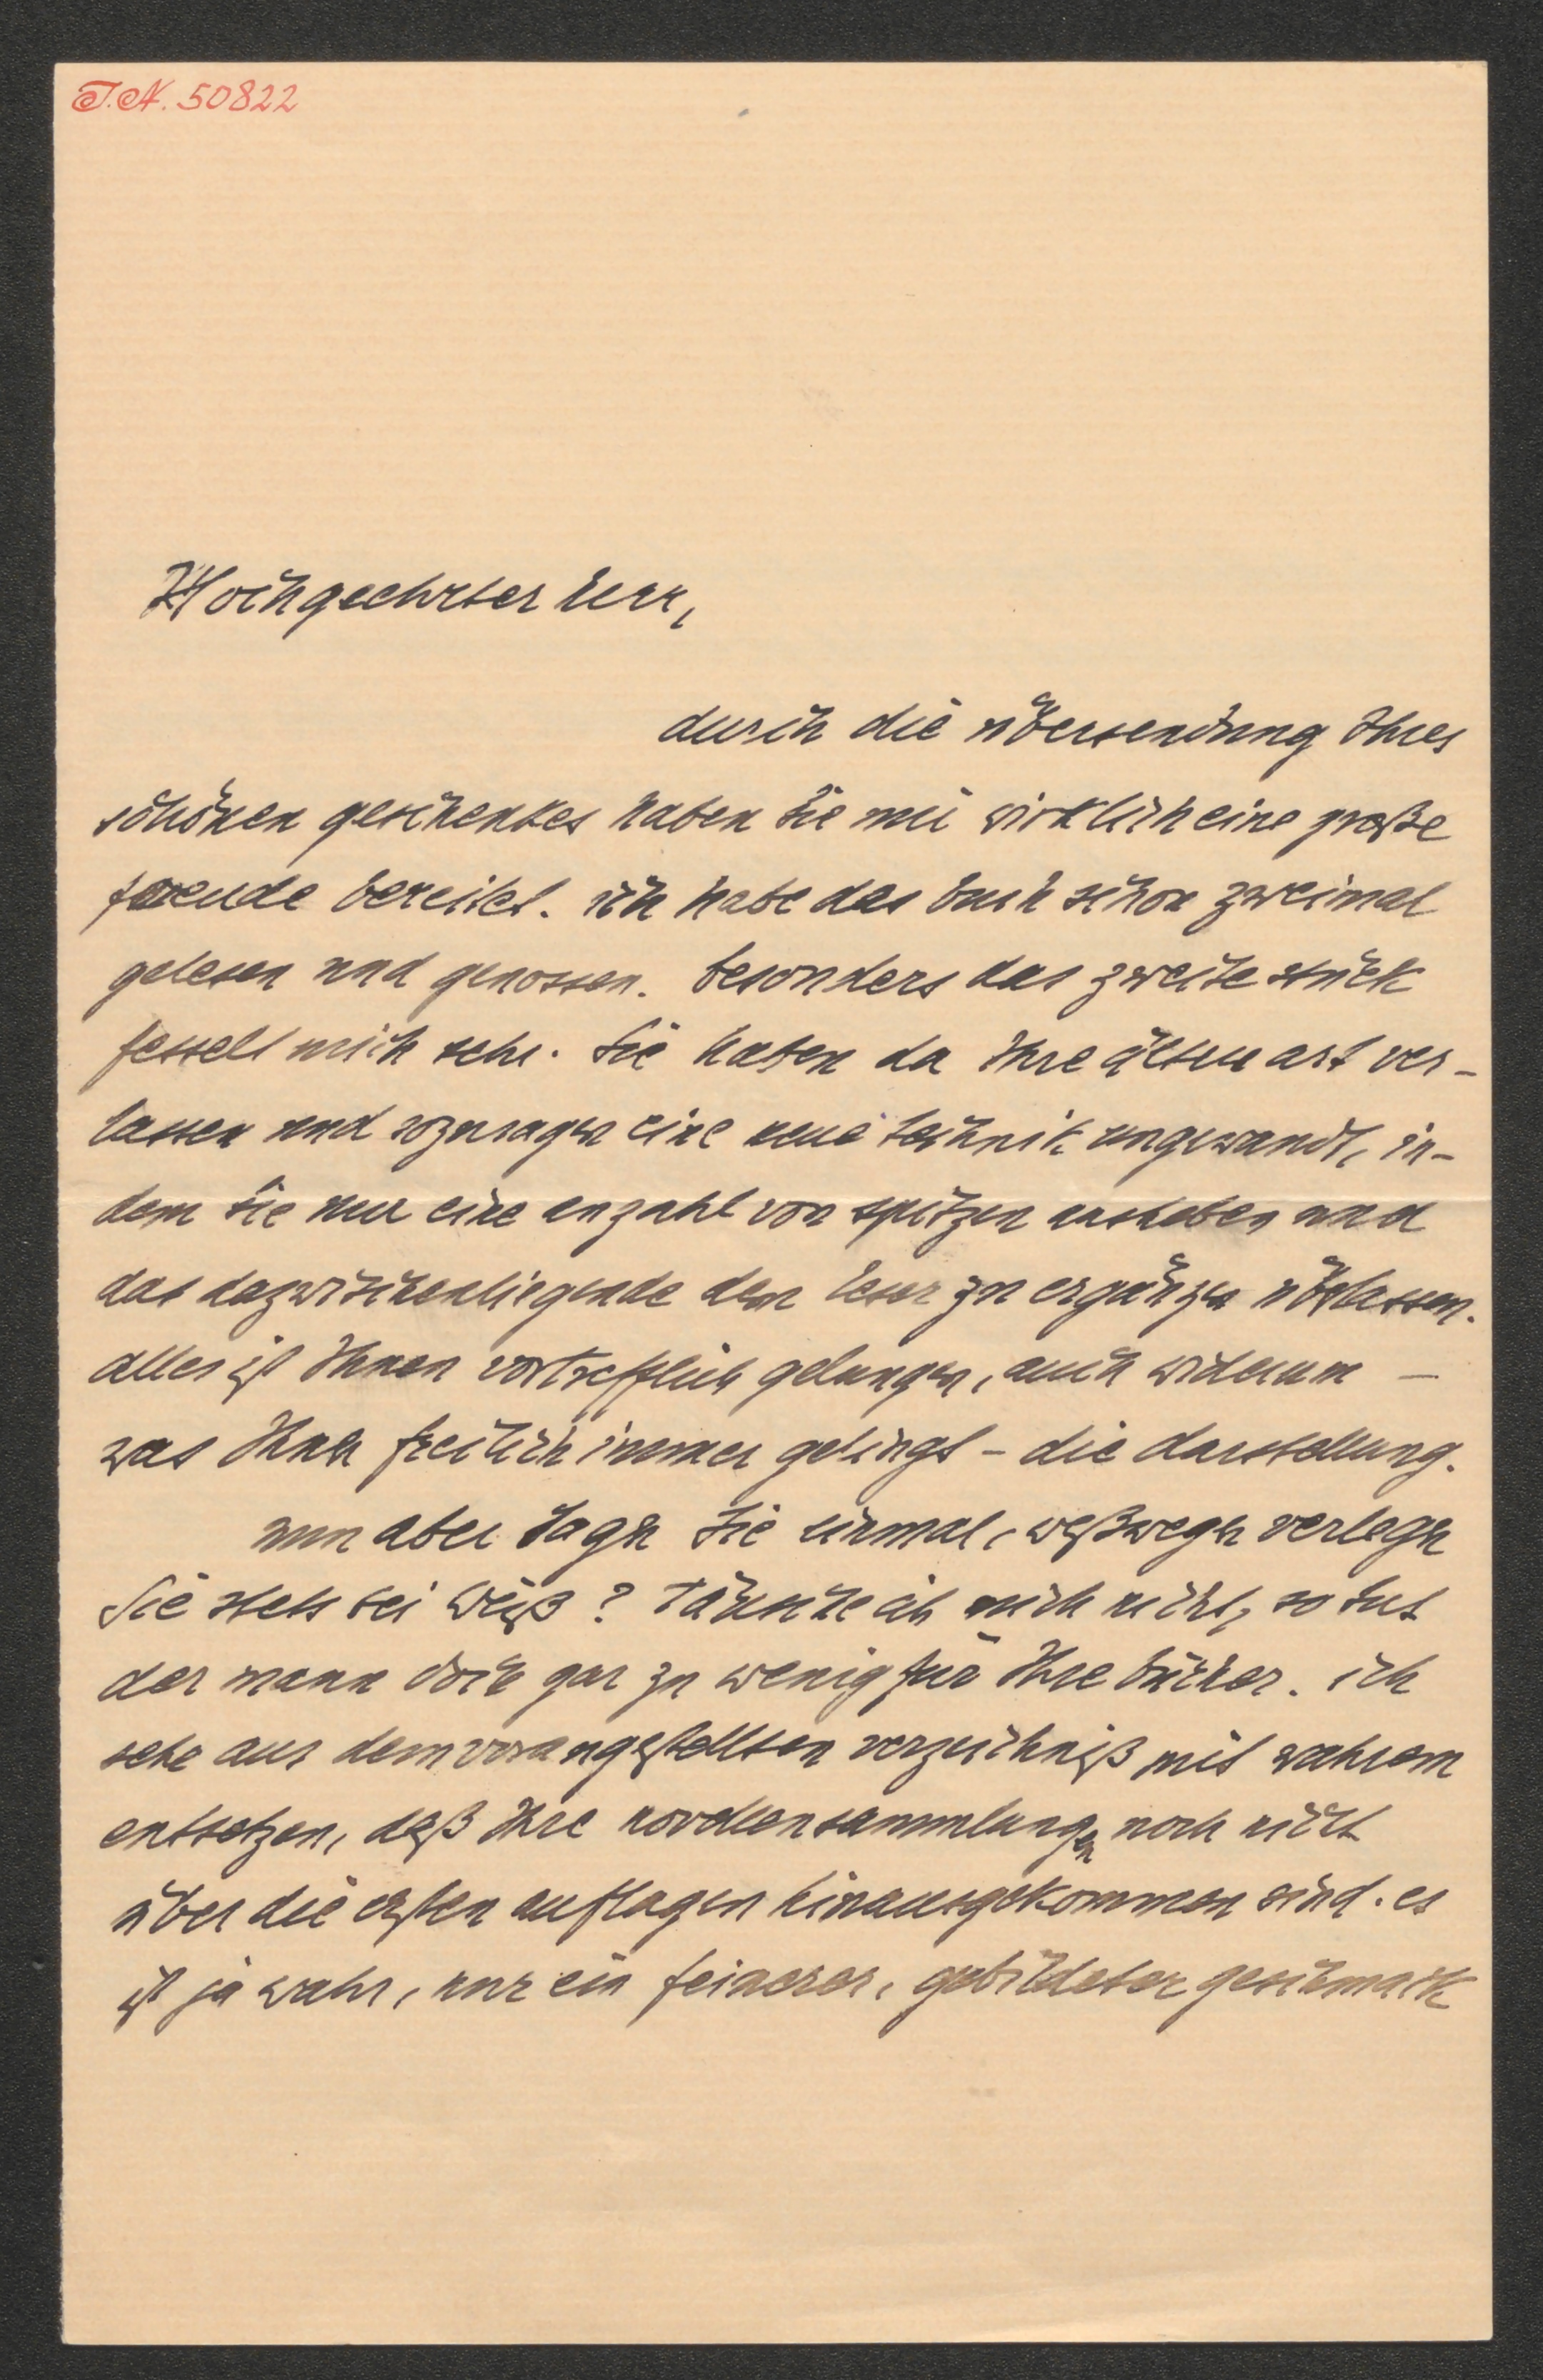 I.N. 50822
Hochgeehrter herr,
durch die übersendung Ihres
schönen geschenkes haben Sie mir wirklich eine große
freude bereitet. ich habe das buch schon zweimal
gelesen und genossen. besonders das zweite stück
fesselt mich sehr. Sie haben da Ihre ältere art ver-
lassen und sozusagen eine neue technik angewandt, in-
dem Sie nur eine anzahl von spitzen ausheben und
das dazwischenliegende dem leser zu ergänzen überlassen.
alles ist Ihnen vortrefflich gelungen, auch widerum –
was Ihnen freilich immer gelingt – die darstellung.
nun aber sagen Sie einmal, weßwegen verlegen
Sie stets bei Weiß? täusche ich mich nicht, so tut
der mann doch gar zu wenig für Ihre bücher. ich
sehe aus dem vorangestellten verzeichniß mit wahrem
entsetzen, daß Ihre novellensammlungen noch nicht
über die ersten auflagen hinausgekommen sind. es
ist ja wahr, nur ein feinerer, gebildeter geschmack